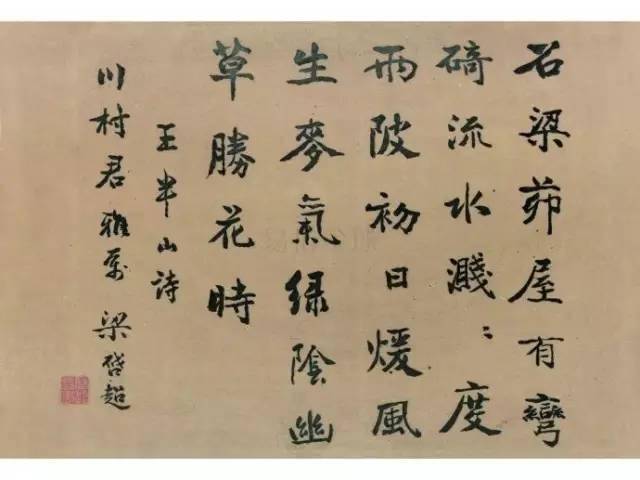 石梁茆屋有彎
碕流水濺〻度
兩陂初日煖風
生麥氣緑陰幽
草勝花時
王半山詩
川村君雅属 梁啓超